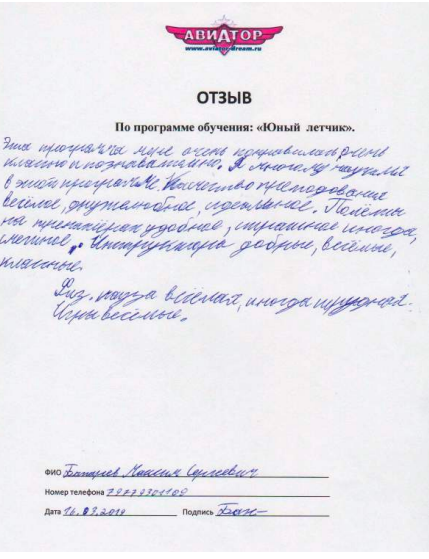 АВИАТОР
www.aviator-dream.ru
ОТЗЫВ
По программе обучения: «Юный летчик».
Эта программа мне очень понравилась очень
классно и познавательно. Я многому научился
в этой программе. Качество преподования
весёлое, дружелюбное, идеальное. Полёты
на тренажёрах удобное, страшные иногда,
смешные. Инструктора добрые, весёлые,
классные.
Физ. пауза весёлая, иногда трудная.
Игры весёлые.
ФИО Максим Сергеевич
Номер телефона 79779301109
Дата 16.03.2019 Подпись